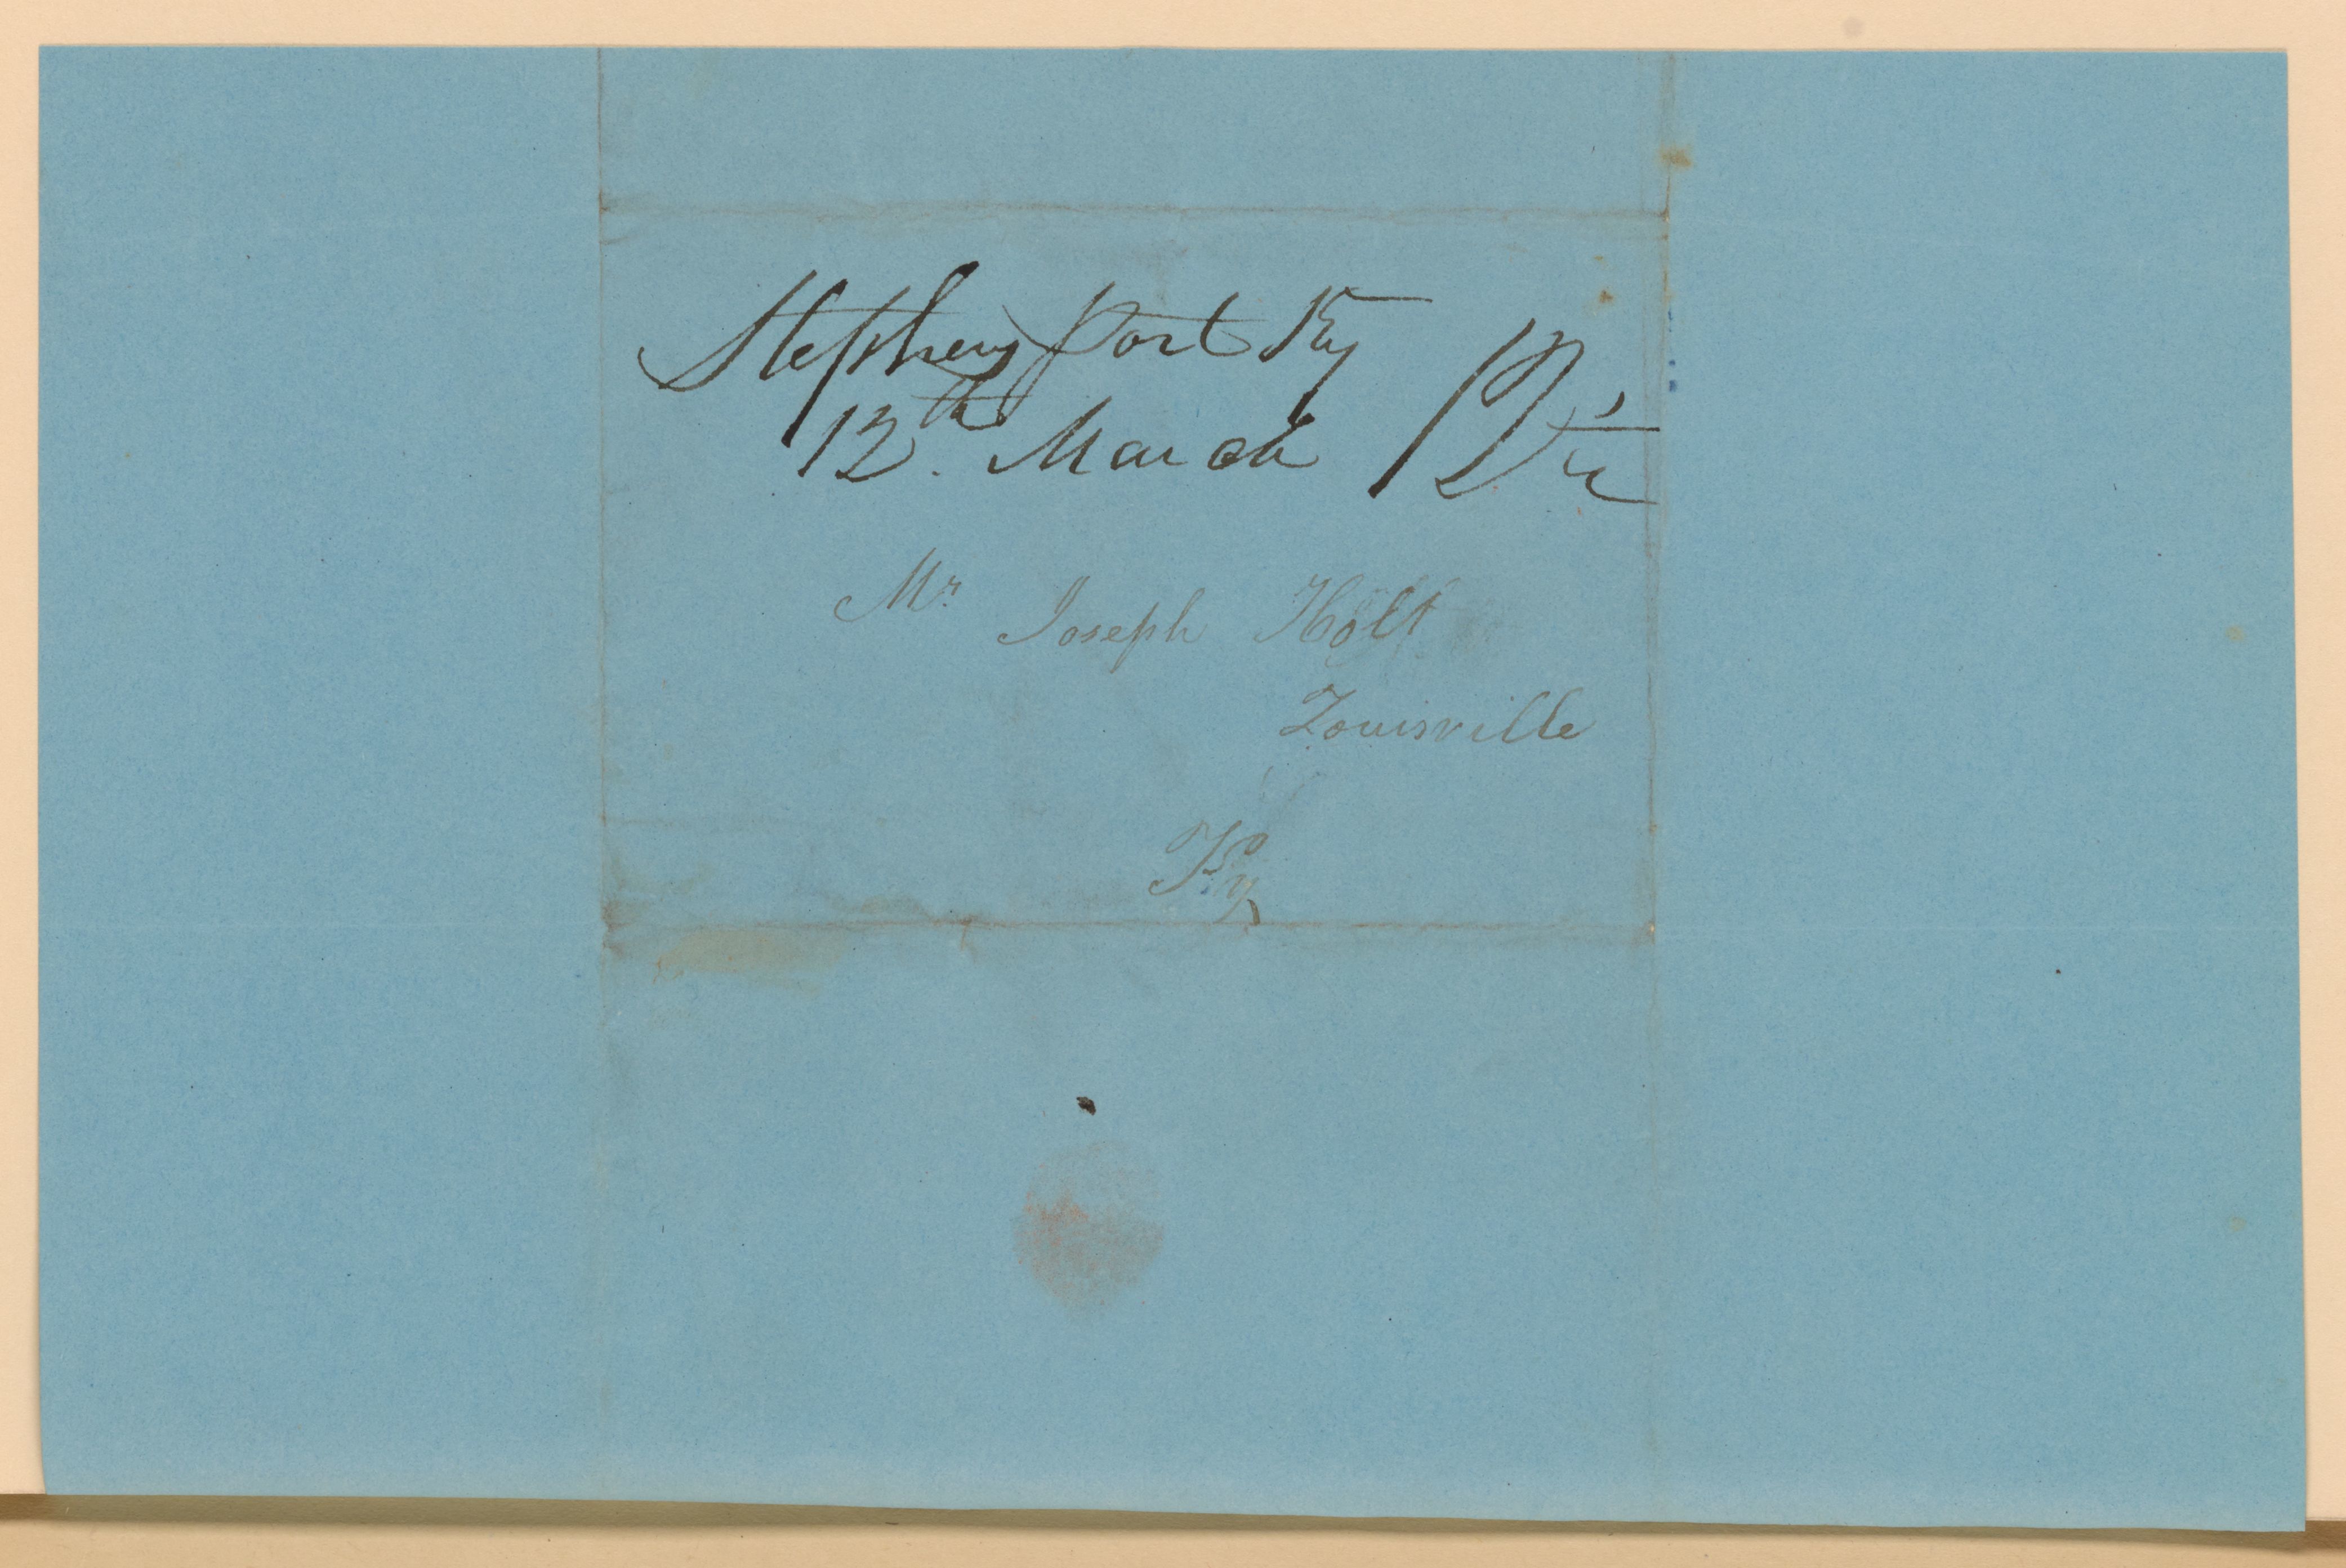 Stephensport Ky
12th. March 12 1/2
Mr Joseph Holt
Louisville
Ky